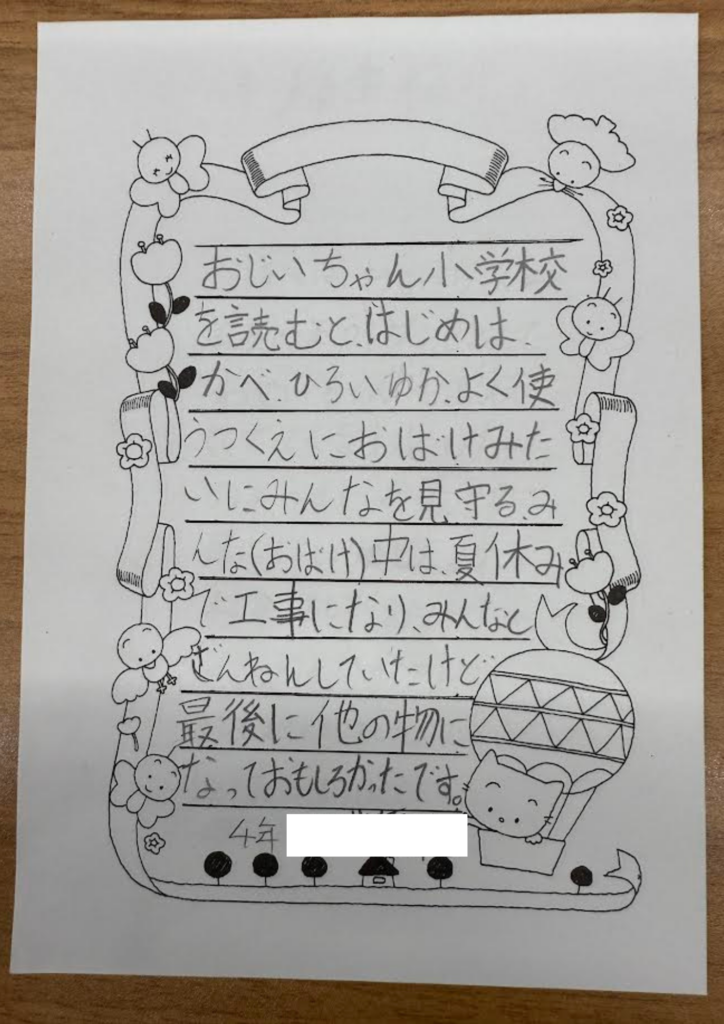 おじいちゃん小学校
を読むと、はじめは、
かべ、ひろいゆか、よく使
うつくえにおばけみた
いにみんなを見守る、み
んな(おばけ)中は、夏休み
で工事になり、みんなと
ざんねんしていたけど
最後に他の物に
なっておもしろかったです。
4年